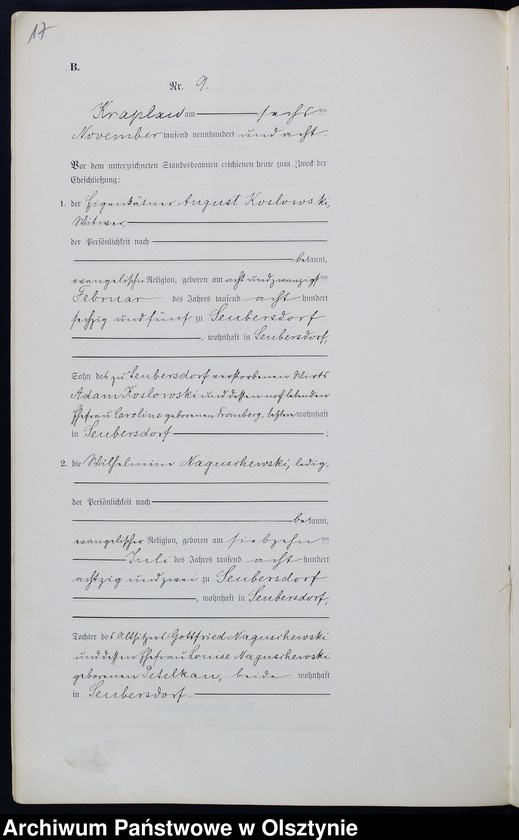 17
B.
Nr. 9.
Kraplau am sechs ten
November tausend neunhundert und acht.
Vor dem unterzeichneten Standesbeamten erschienen heute zum Zweck der
Eheschließung:
1. der Eigenkätner August Koslowski,
Witwer,
der Persönlichkeit nach
bekannt,
evangelischer Religion, geboren am acht und zwanzigsten
Februar des Jahres tausend acht hundert
sechzig und fünf zu Seubersdorf
, wohnhaft in Seubersdorf,
Sohn des zu Seubersdorf verstorbenen Wirts
Adam Koslowski und dessen noch lebenden
Ehefrau Caroline geborenen Fromberg, letztere wohnhaft
in Seubersdorf ;
2. die Wilhelmine Naguschewski, ledig,
der Persönlichkeit nach
bekannt,
evangelischer Religion, geboren am siebzehn ten
Juli des Jahres tausend acht hundert
achtzig und zwei zu Seubersdorf
, wohnhaft in Seubersdorf,
Tochter des Altsitzers Gottfried Naguschewski
und dessen Ehefrau Louise Naguschewski
geborenen Petelkau, beide wohnhaft
in Seubersdorf.
Archiwum Państwowe w Olsztynie